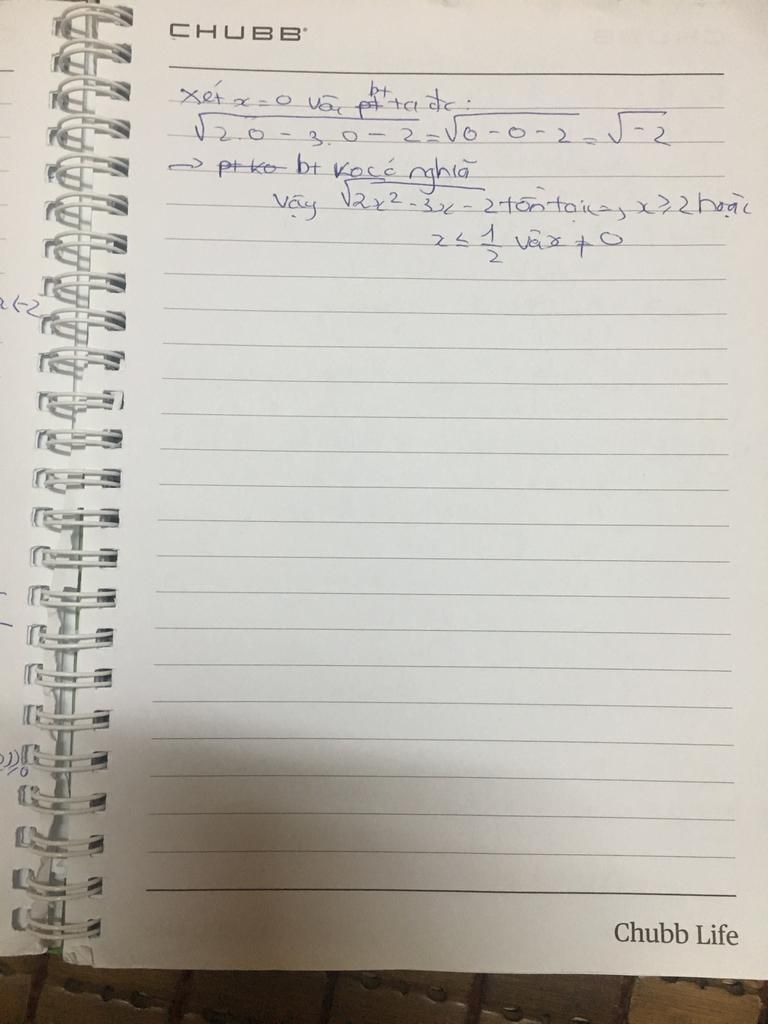 CHUBB
xét x = 0 vào p̶t̶ bt ta đc :
√2.0 - 3.0 - 2 = √0 - 0 - 2 = √-2
→ p̶t̶ k̶o̶ bt ko có nghĩa
Vậy √2x² - 3x - 2 tồn tại <=> x ≥ 2 hoặc
x ≤ 1/2 và x ≠ 0
x<-2
≥0
Chubb Life